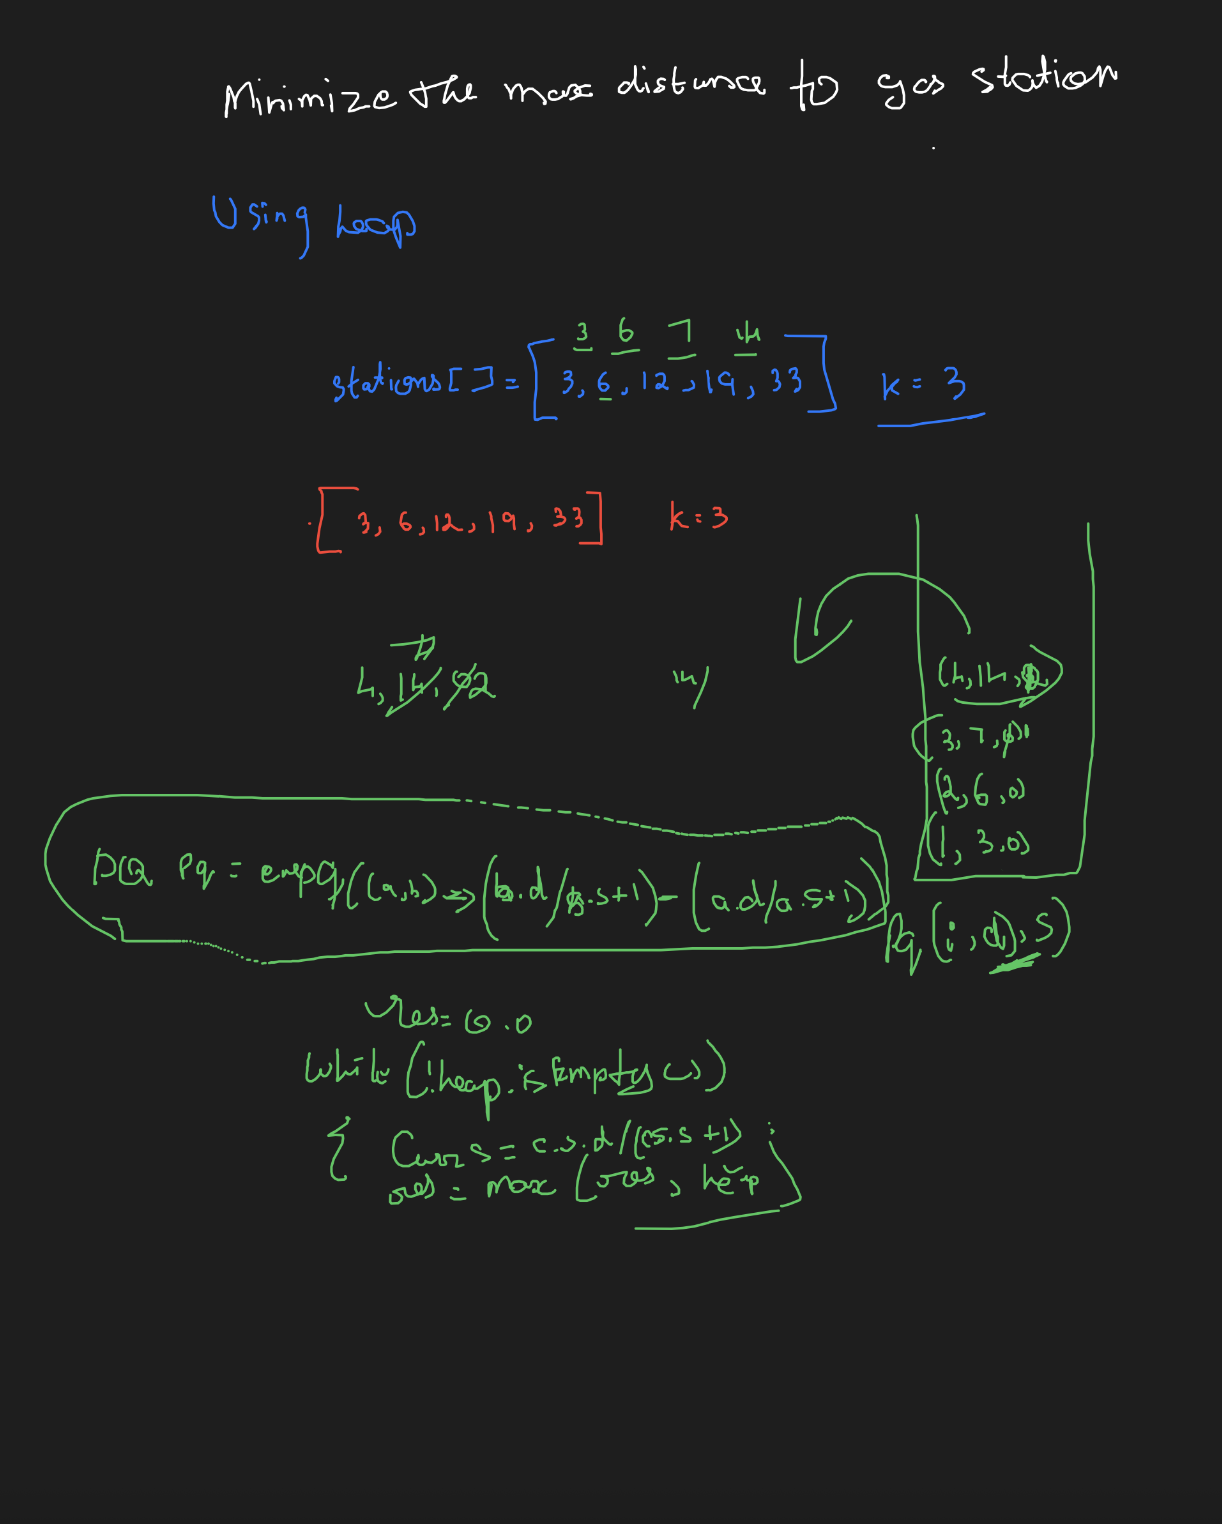 Minimize the max distance to gas station
Using heap
3 6 7 14
stations[] = [3, 6, 12, 19, 33] k = 3
[3, 6, 12, 19, 33] k = 3
4, 14, 2
14/
(4, 14,
(3, 7, 1
(2, 6, 0)
(1, 3, 0)
Pq = ((a,b) => (b.d/b.s+1) - (a.d/a.s+1))
Pq (i, d, s)
res = 0.0
while (!heap.isEmpty())
{ Curr s = c.s.d/(cs.s+1);
res = max (res, heap)